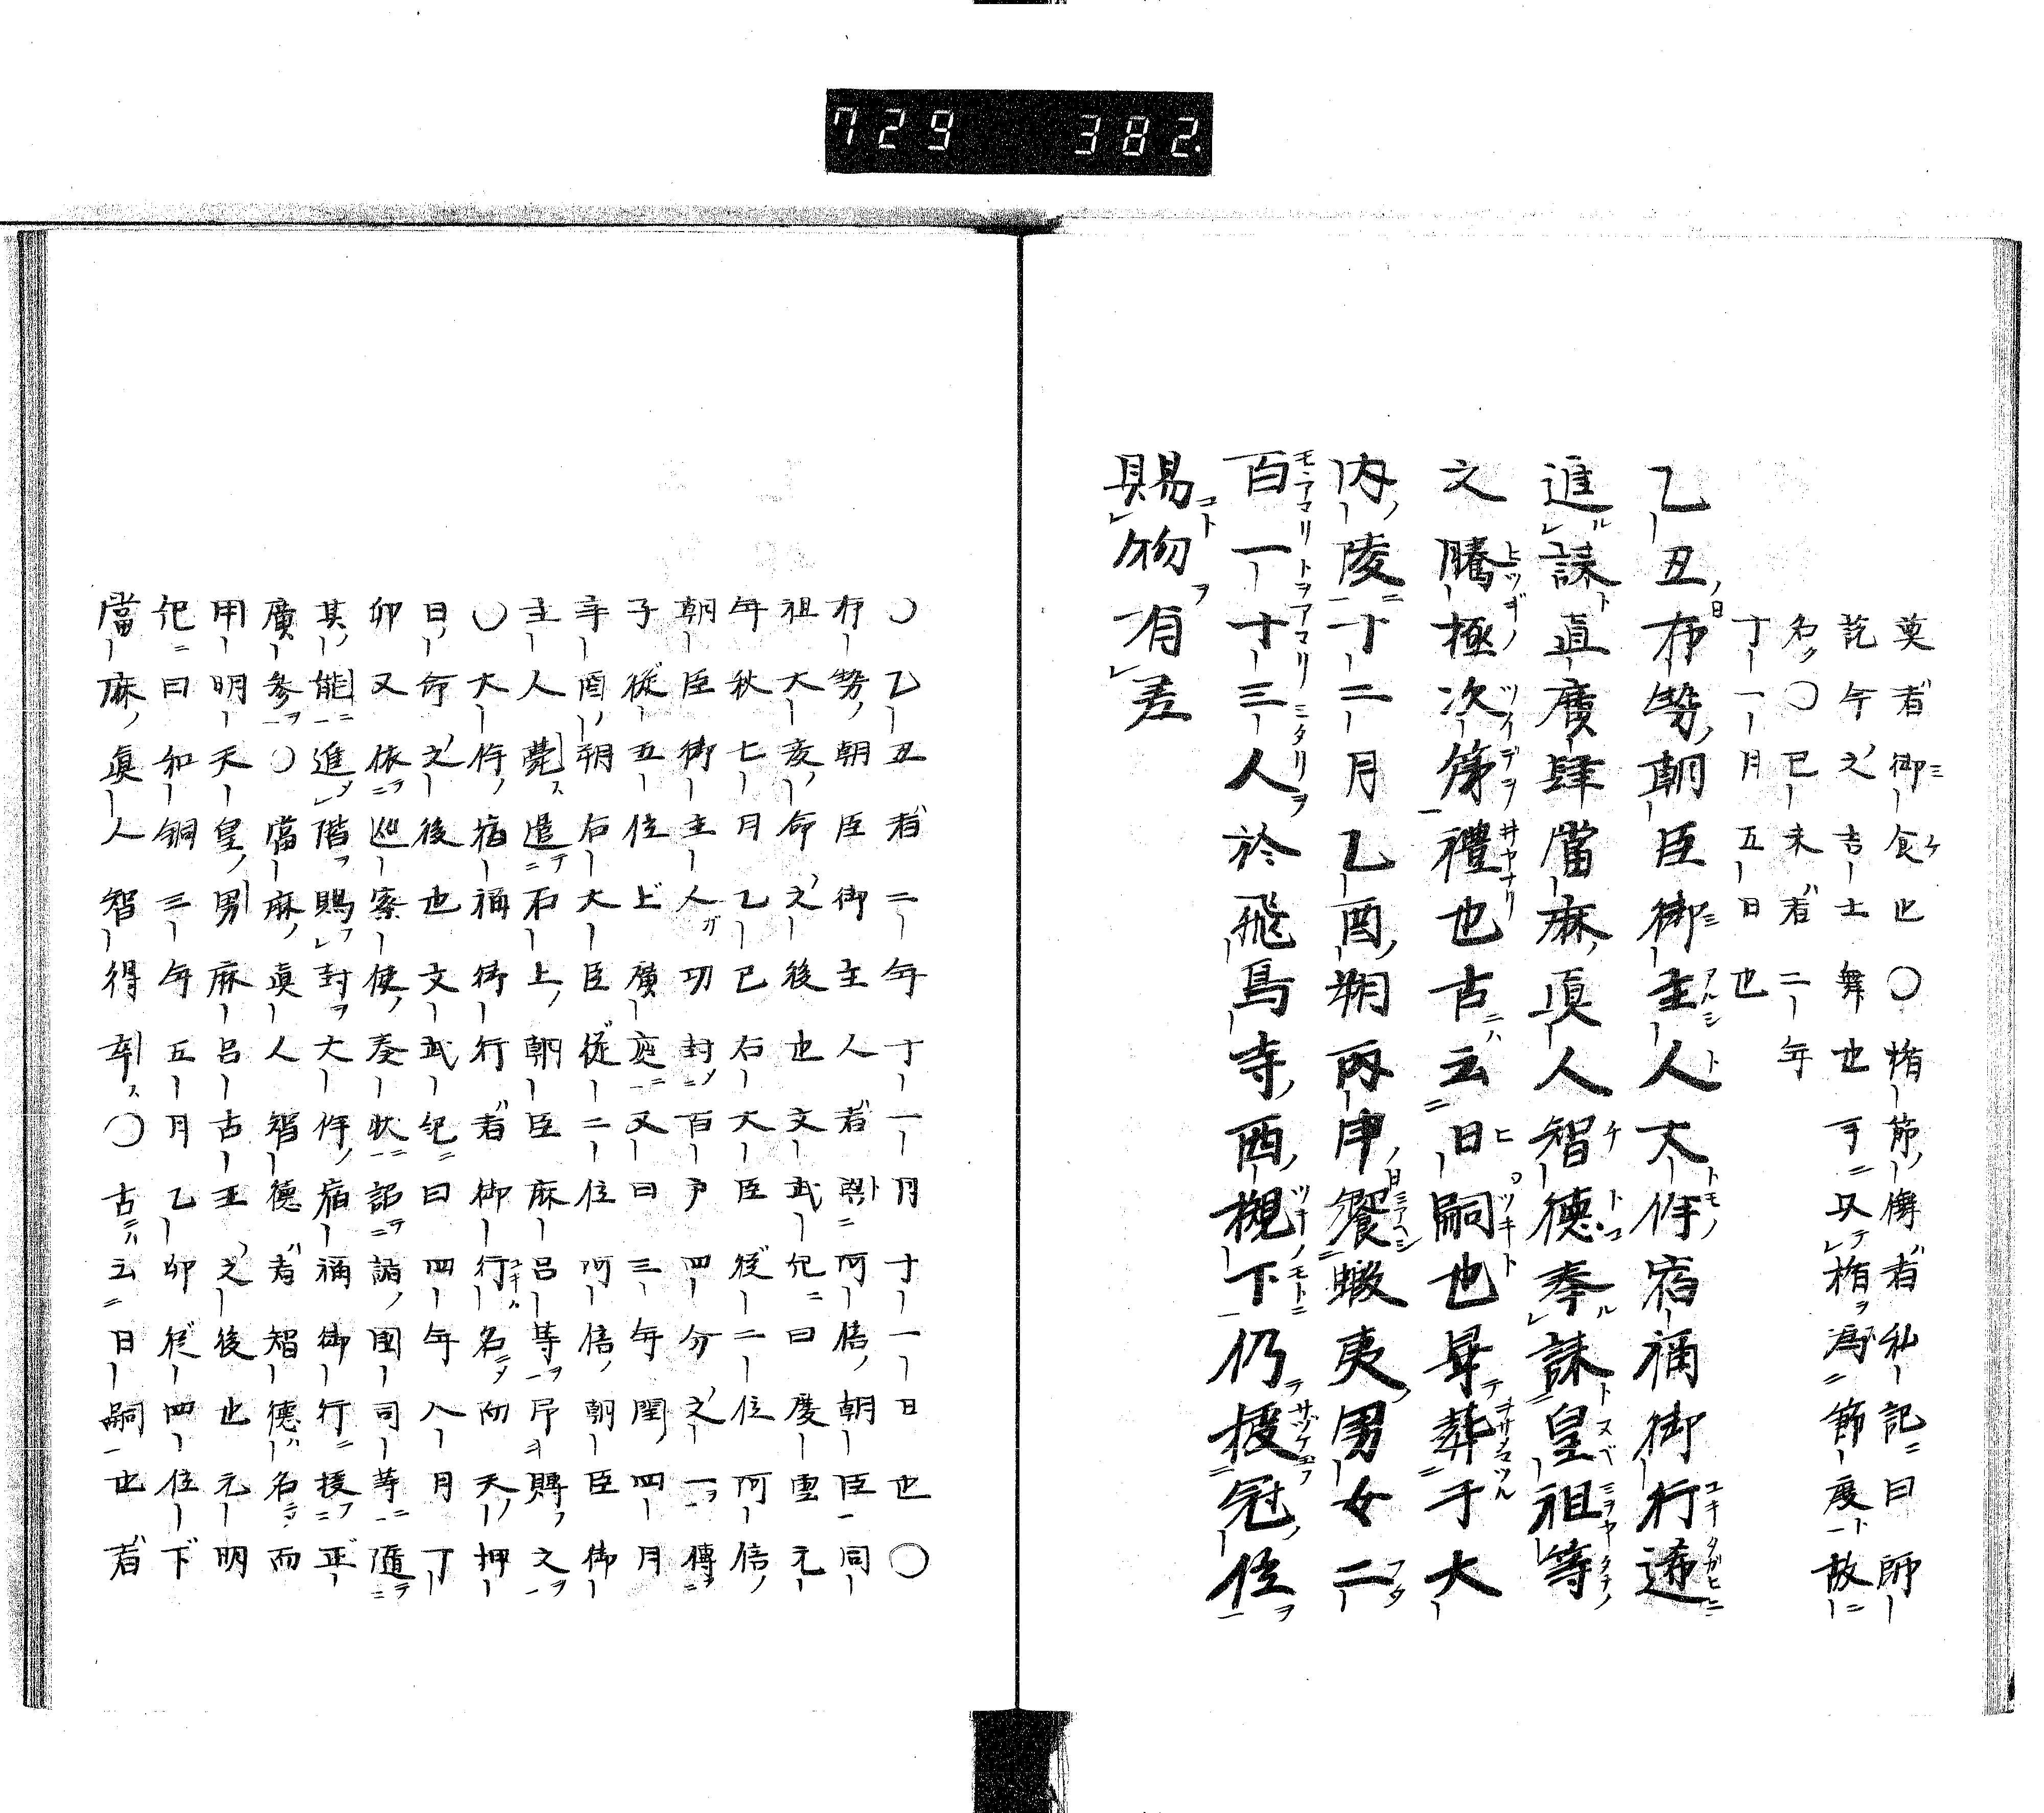 729 382.
奠者御食也〇楯節儛者私記曰師
說今之吉士舞也手以楯為節度故
名〇己未者二年
十一月五日也
乙丑布勢朝臣御主人大伴宿禰御行遞
進誄直廣肆當麻眞人智德奉誄皇祖等
之騰極次第禮也古云日嗣也畢葬于大
内陵十二月乙酉朔丙申饗蝦夷男女二
百一十三人於飛鳥寺西槻下仍授冠位
賜物有差
〇乙丑者二年十一月十一日也〇
布勢朝臣御主人者與阿倍朝臣同
祖大亥命之後也文武紀曰慶雲元
年秋七月乙巳右大臣從二位阿倍
朝臣御主人功封百戸四分之一傳
子從五位上廣庭又曰三年閏四月
辛酉朔右大臣從二位阿倍朝臣御
主人薨遣石上朝臣麻呂等弔賻之
〇大伴宿禰御行者御行名而天押
日命之後也文武紀曰四年八月丁
卯又依巡察使奏状詔諸國司等隨
其能進階賜封大伴宿禰御行授正
廣參〇當麻眞人智德者智德名而
用明天皇男麻呂古王之後也元明
紀曰和銅三年五月乙卯從四位下
當麻眞人智得卒〇古云日嗣也者